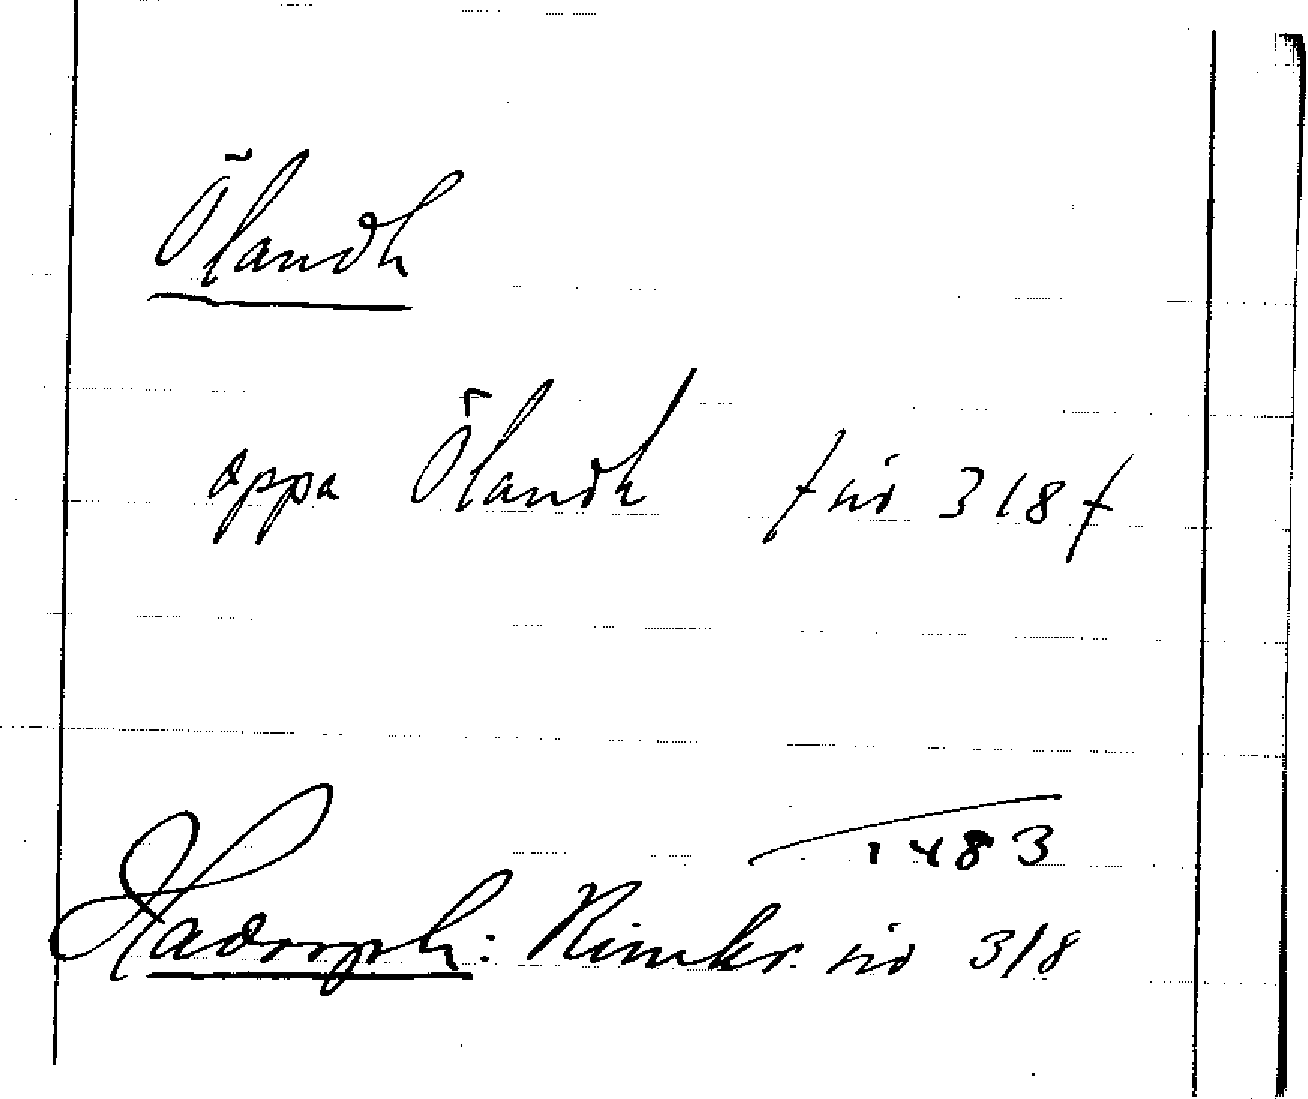 Ölandh
oppa Ölandh / sid 318 /
1483
Hadorph: Rimkr. sid 318